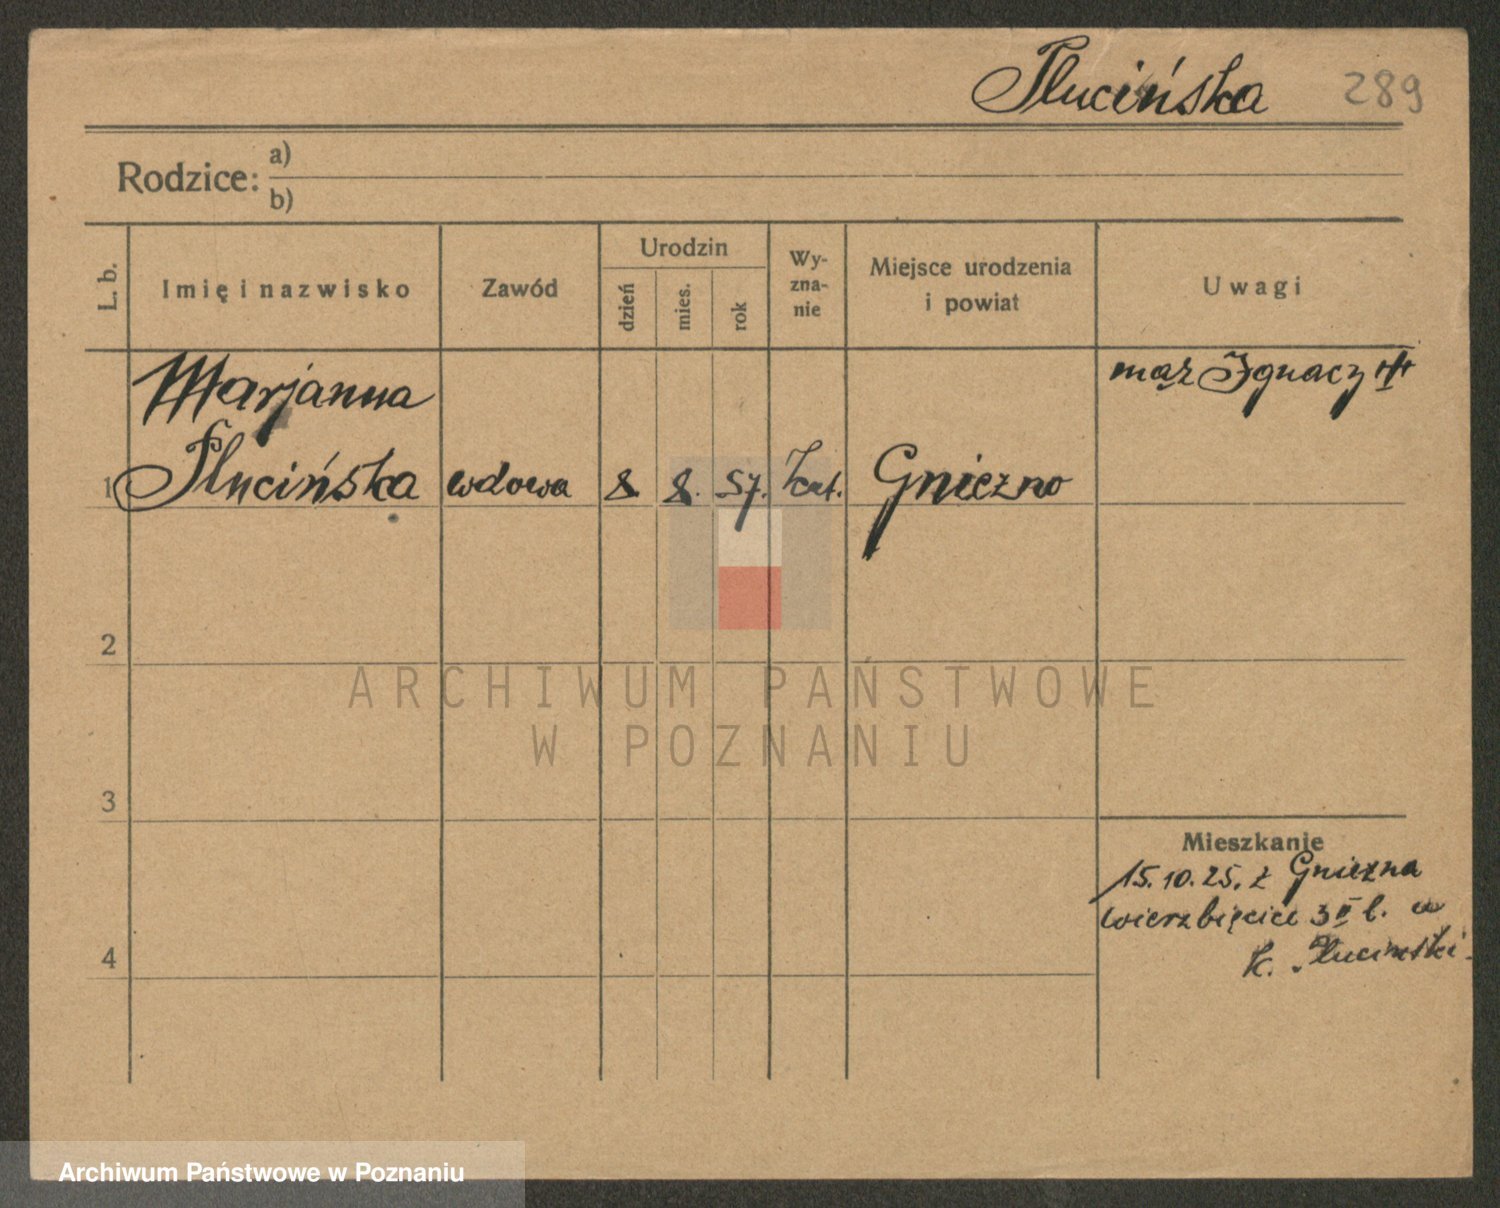 Plucińska 289
Rodzice: a)
b)
L. b.
Imię i nazwisko
Zawód
Urodzin
dzień
mies.
rok
Wy-
zna-
nie
Miejsce urodzenia
i powiat
Uwagi
Marjanna
mąż Ignacy
1 Plucińska wdowa 8. 8. 57. kat. Gniezno
2
3
4
Mieszkanie
15.10.25. z Gniezna
Wierzbięcice 3 II l. u
K. Plucinski.
ARCHIWUM PAŃSTWOWE
W POZNANIU
Archiwum Państwowe w Poznaniu